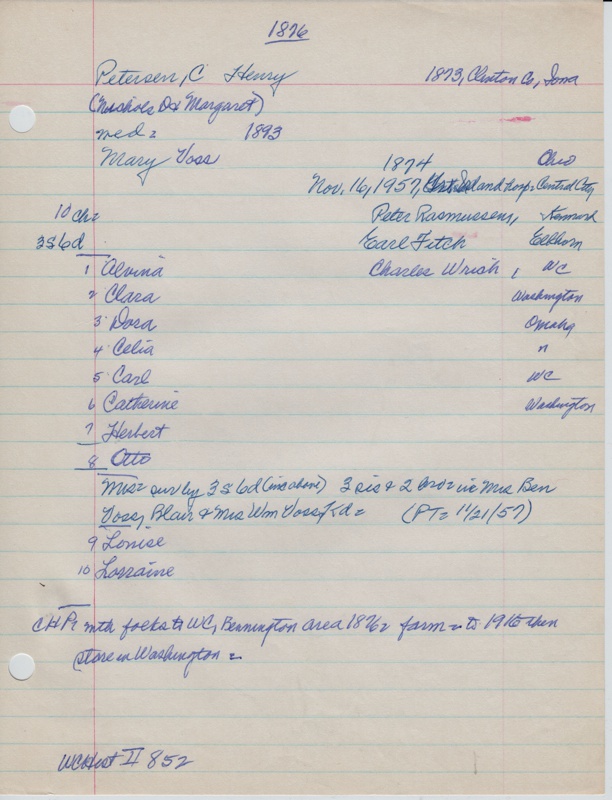 1876
Petersen, C Henry 1873, Clinton Co, Iowa
(Nickols D & Margaret)
med = 1893
Mary Voss 1874 Ohio
Nov. 16, 1957, and hosp = Central City
10 ch = Peter Rasmussen, Kennard
3s 6d Earl Fitch Elkhorn
1 Alvina Charles Wrich, WC
2 Clara Washington
3 Dora Omaha
4 Celia "
5 Carl WC
6 Catherine Washington
7 Herbert
8 Otto
Mrs = sur by 3s 6d (inc above) 3 sis & 2 bro = inc Mrs Ben
Voss, Blair & Mrs Wm Voss, Kd = (PT = 11/21/57)
9 Louise
10 Lorraine
CHP = with folks to WC, Bennington area 1876 = farm = to 1916 then
store in Washington =
WCHist II 852